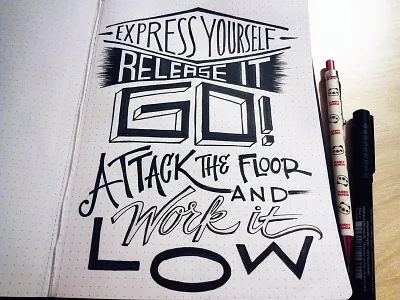 EXPRESS YOURSELF
RELEASE IT
GO!
ATTACK THE FLOOR
AND
Work it
LOW